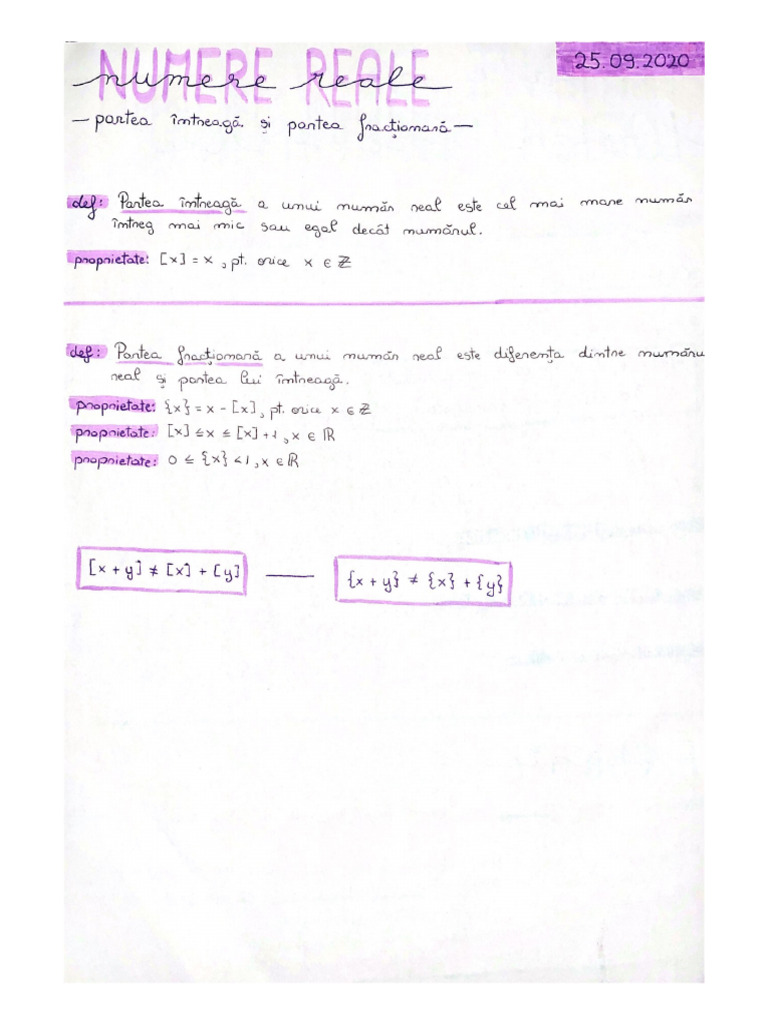 NUMERE REALE
numere reale
25.09.2020
— partea întreagă și partea fracționară —
def: Partea întreagă a unui număr real este cel mai mare număr
întreg mai mic sau egal decât numărul.
proprietate: [x] = x , pt. orice x ∈ ℤ
def: Partea fracționară a unui număr real este diferența dintre număru
real și partea lui întreagă.
proprietate: {x} = x - [x] , pt. orice x ∈ ℤ
proprietate: [x] ≤ x ≤ [x] + 1 , x ∈ ℝ
proprietate: 0 ≤ {x} < 1 , x ∈ ℝ
[x + y] ≠ [x] + [y] — {x + y} ≠ {x} + {y}